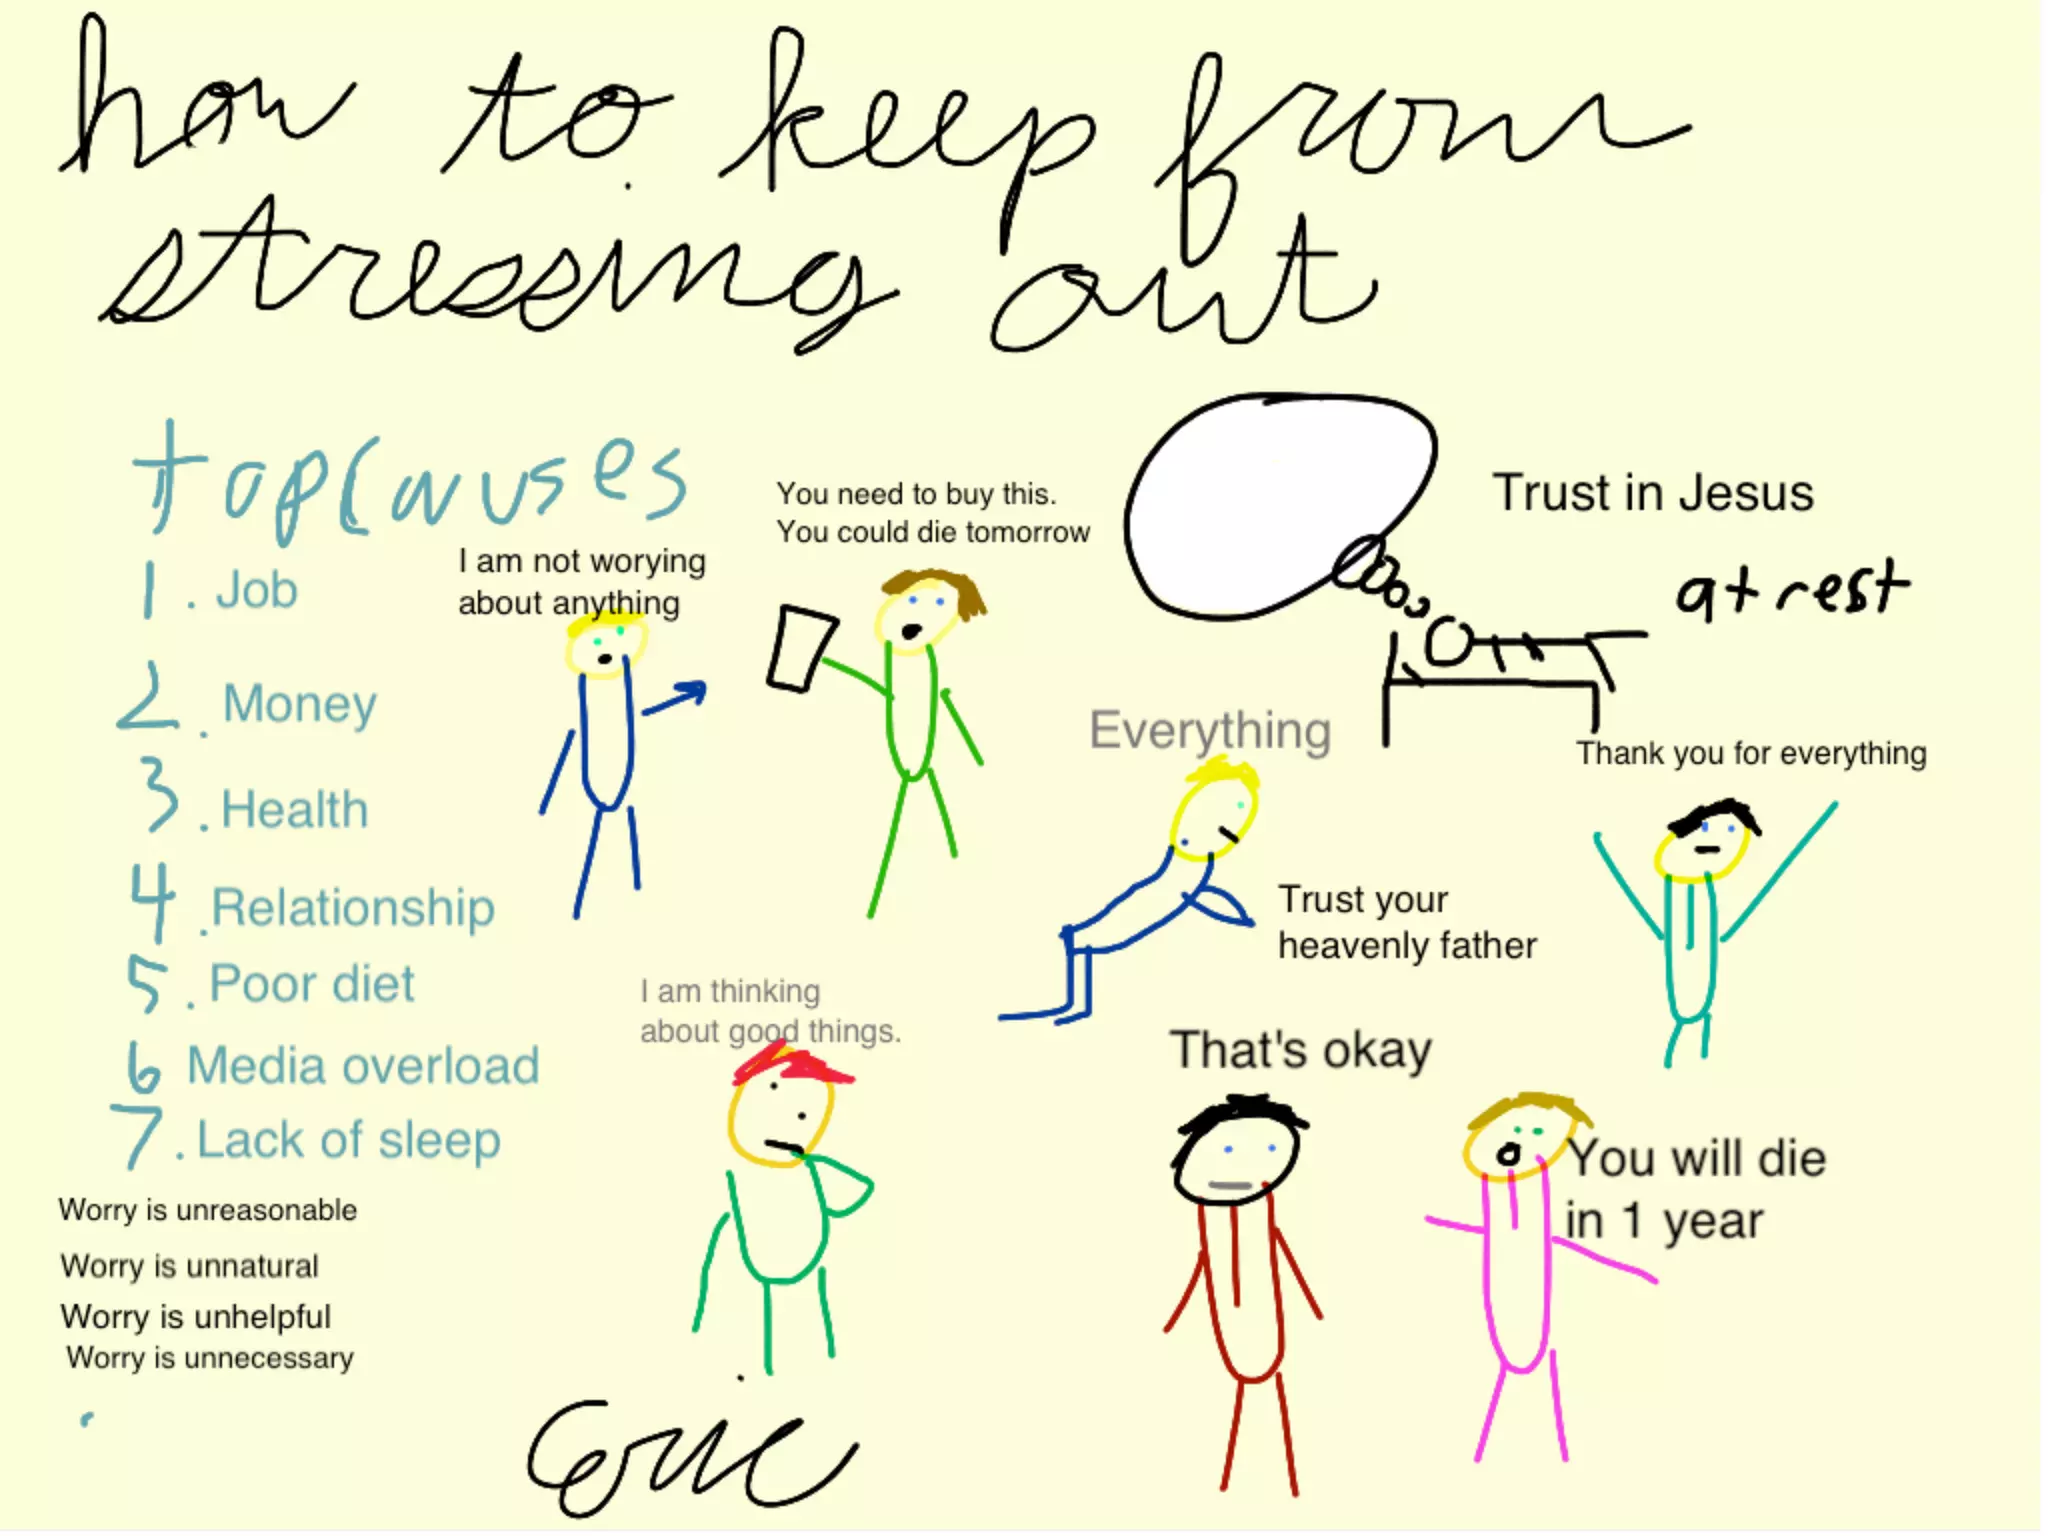 how to keep from
stressing out
top causes
1. Job
2. Money
3. Health
4. Relationship
5. Poor diet
6 Media overload
7. Lack of sleep
Worry is unreasonable
Worry is unnatural
Worry is unhelpful
Worry is unnecessary
I am not worying
about anything
You need to buy this.
You could die tomorrow
Trust in Jesus
at rest
Everything
Trust your
heavenly father
Thank you for everything
I am thinking
about good things.
That's okay
You will die
in 1 year
Eric